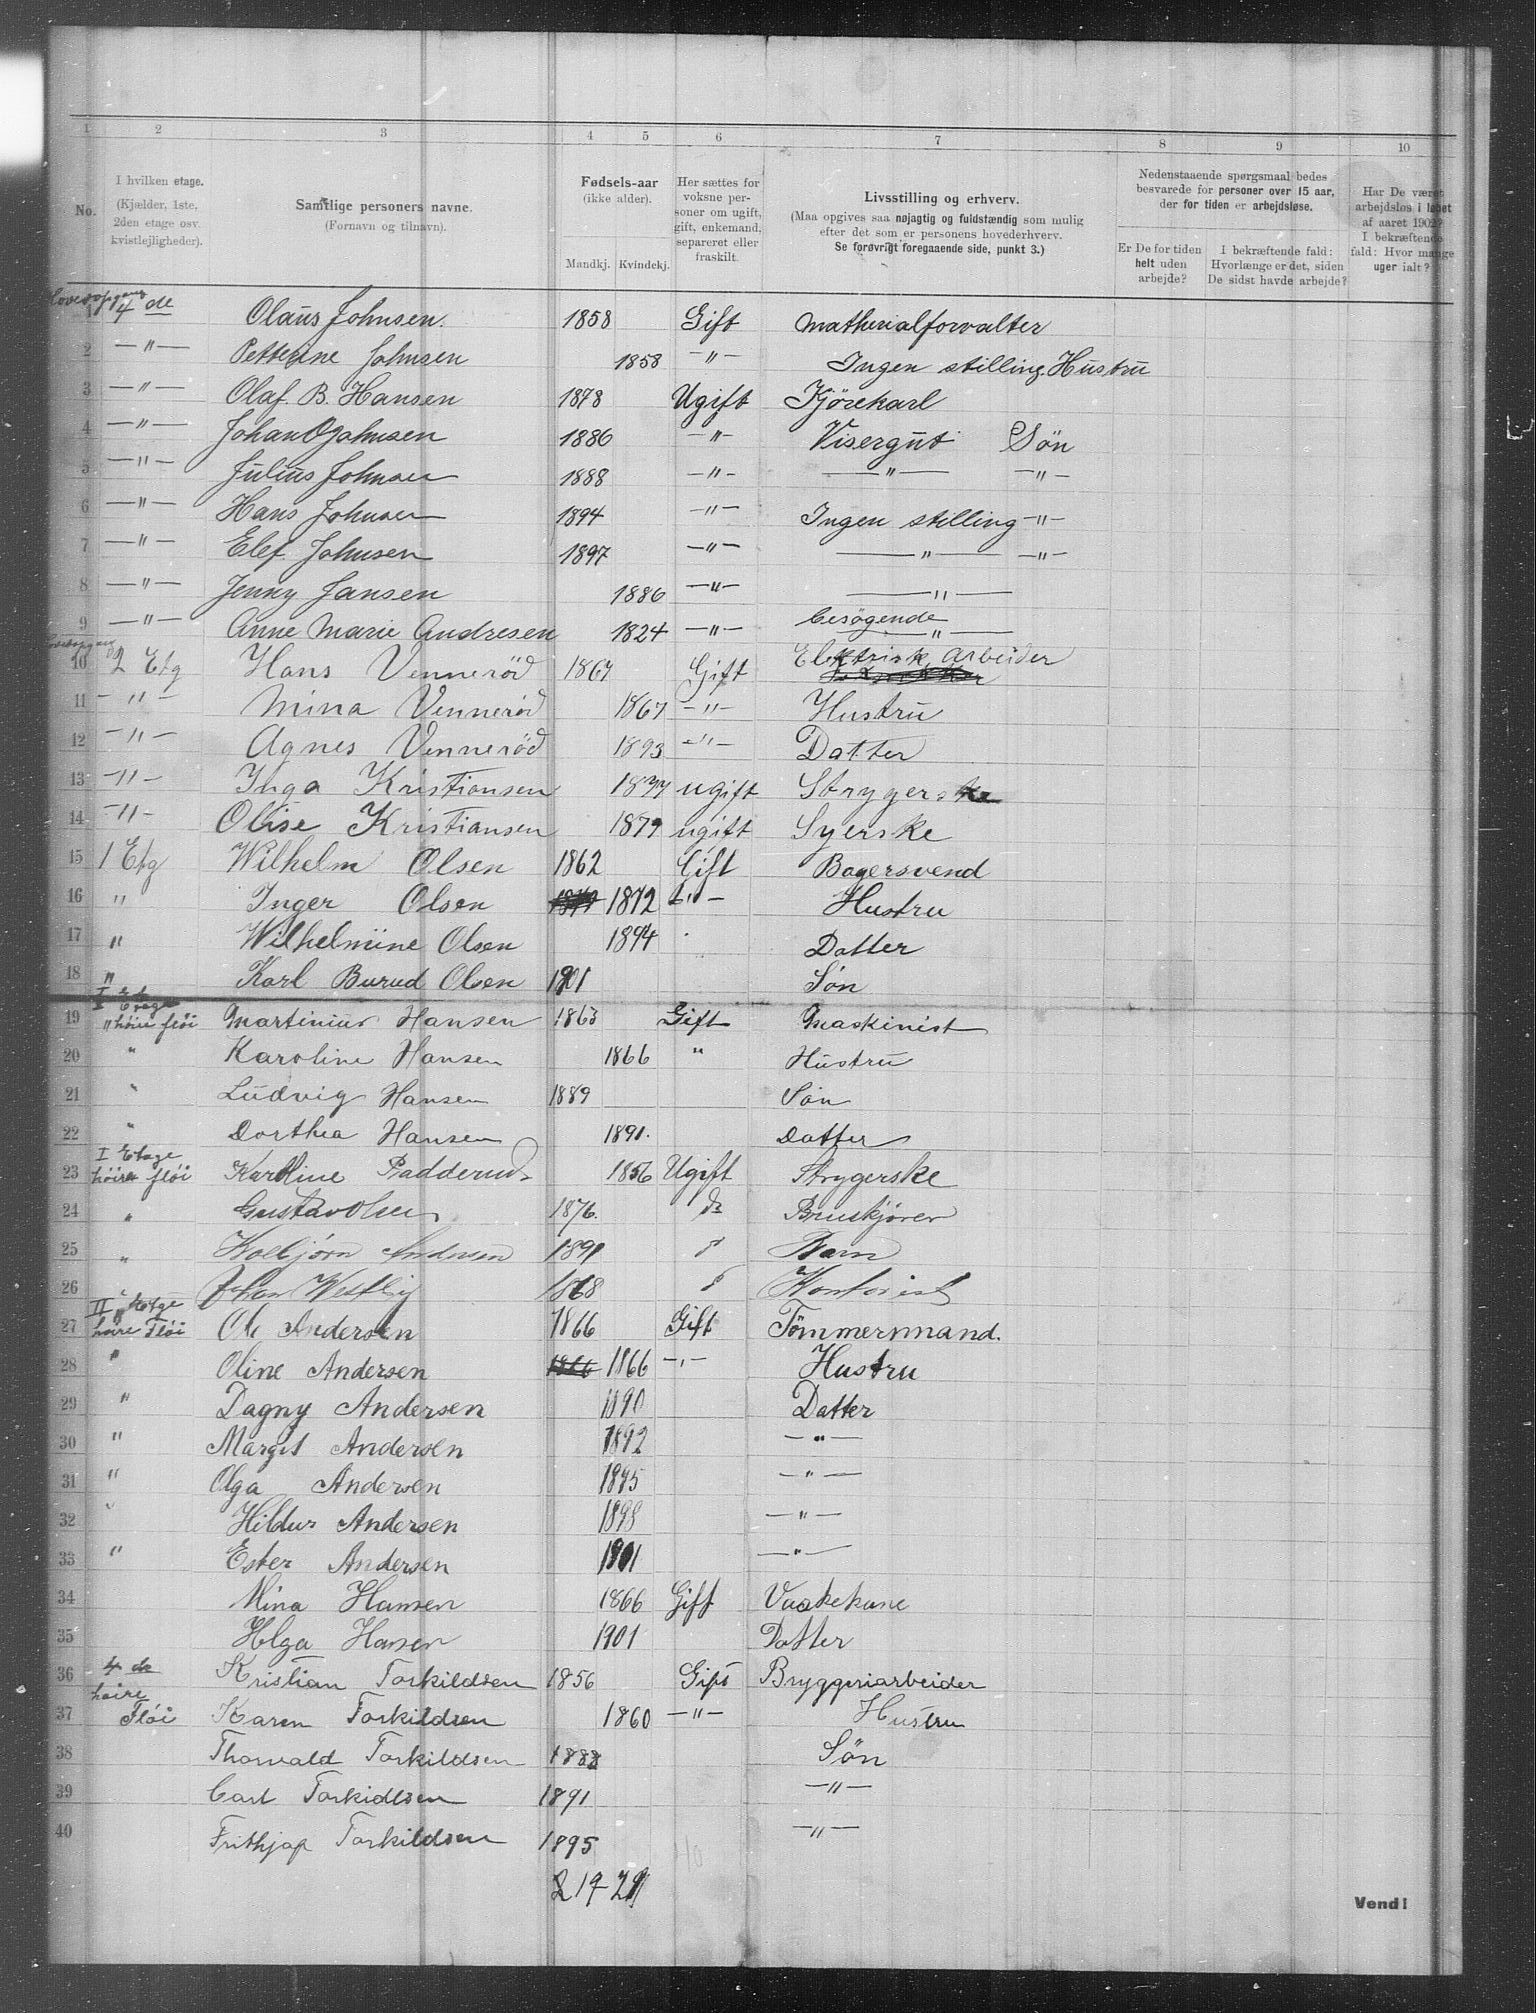 1 2 3 4 5 6 7 8 9 10
No. I hvilken etage. (Kjælder, 1ste, 2den etage osv. kvistlejligheder). Samtlige personers navne. (Fornavn og tilnavn). Fødsels-aar (ikke alder). Mandkj. Kvindekj. Her sættes for voksne personer om ugift, gift, enkemand, separeret eller fraskilt. Livsstilling og erhverv. (Maa opgives saa nøjagtig og fuldstændig som mulig efter det som er personens hovederhverv. Se forøvrigt foregaaende side, punkt 3.) Nedenstaaende spørgsmaal bedes besvarede for personer over 15 aar, der for tiden er arbejdsløse. Er De for tiden helt uden arbejde? I bekræftende fald: Hvorlænge er det, siden De sidst havde arbejde? Har De været arbejdsløs i løbet af aaret 1902? I bekræftende fald: Hvor mange uger ialt?
1 4 de Olaus Johnsen. 1858 Gift Matherialforvalter
2 —"— Petterine Johnsen 1858 —"— Ingen stilling Hustru
3 —"— Olaf B. Hansen 1878 Ugift Kjørekarl
4 —"— Johan O Johnsen 1886 —"— Visergut Søn
5 —"— Julius Johnsen 1888 —"— —"— —"—
6 —"— Hans Johnsen 1894 —"— Ingen stilling —"—
7 —"— Elef Johnsen 1897 —"— —"— —"—
8 —"— Jenny Jansen 1886 —"— —"—
9 —"— Anne Marie Andresen 1824 —"— besøgende —"—
10 2 Etg Hans Vennerød 1867 Gift Elektrisk Arbeider
11 —"— Mina Vennerød 1867 —"— Hustru
12 —"— Agnes Vennerød 1893 —"— Datter
13 —"— Inga Kristiansen 1877 ugift Strygerske
14 —"— Olise Kristiansen 1879 ugift Syerske
15 1 Etg Wilhelm Olsen 1862 Gift Bagersvend
16 " Inger Olsen 1872 —"— Hustru
17 " Wilhelmine Olsen 1894 Datter
18 " Karl Burud Olsen 1901 Søn
19 I Etage " høire fløi Martinius Hansen 1863 Gift Maskinist
20 " Karoline Hansen 1866 " Hustru
21 " Ludvig Hansen 1889 Søn
22 " Dorthea Hansen 1891. Datter
23 I Etage høire fløi Karoline Padderud 1856 Ugift Strygerske
24 " Gustav Olsen 1876. do Bruskjører
25 " Kolbjørn Andersen 1891 Barn
26 " Johan Westby 1868 Kontorist
27 II Etge høire Fløi Ole Andersen 1866 Gift Tømmermand.
28 " Oline Andersen 1866 1866 —"— Hustru
29 " Dagny Andersen 1890 Datter
30 " Margit Andersen 1892 —"—
31 " Olga Andersen 1895 —"—
32 " Hildur Andersen 1898 —"—
33 " Ester Andersen 1901 —"—
34 Mina Hansen 1866 Gift Vaskekone
35 Helga Hansen 1901 Datter
36 4 de høire Kristian Torkildsen 1856 Gift Bryggeriarbeider
37 Fløi Karen Torkildsen 1860 —"— Hustru
38 Thorvald Torkildsen 1888 Søn
39 Carl Torkidlsen 1891 —"—
40 Frithjof Torkildsen 1895 —"—
Vend!